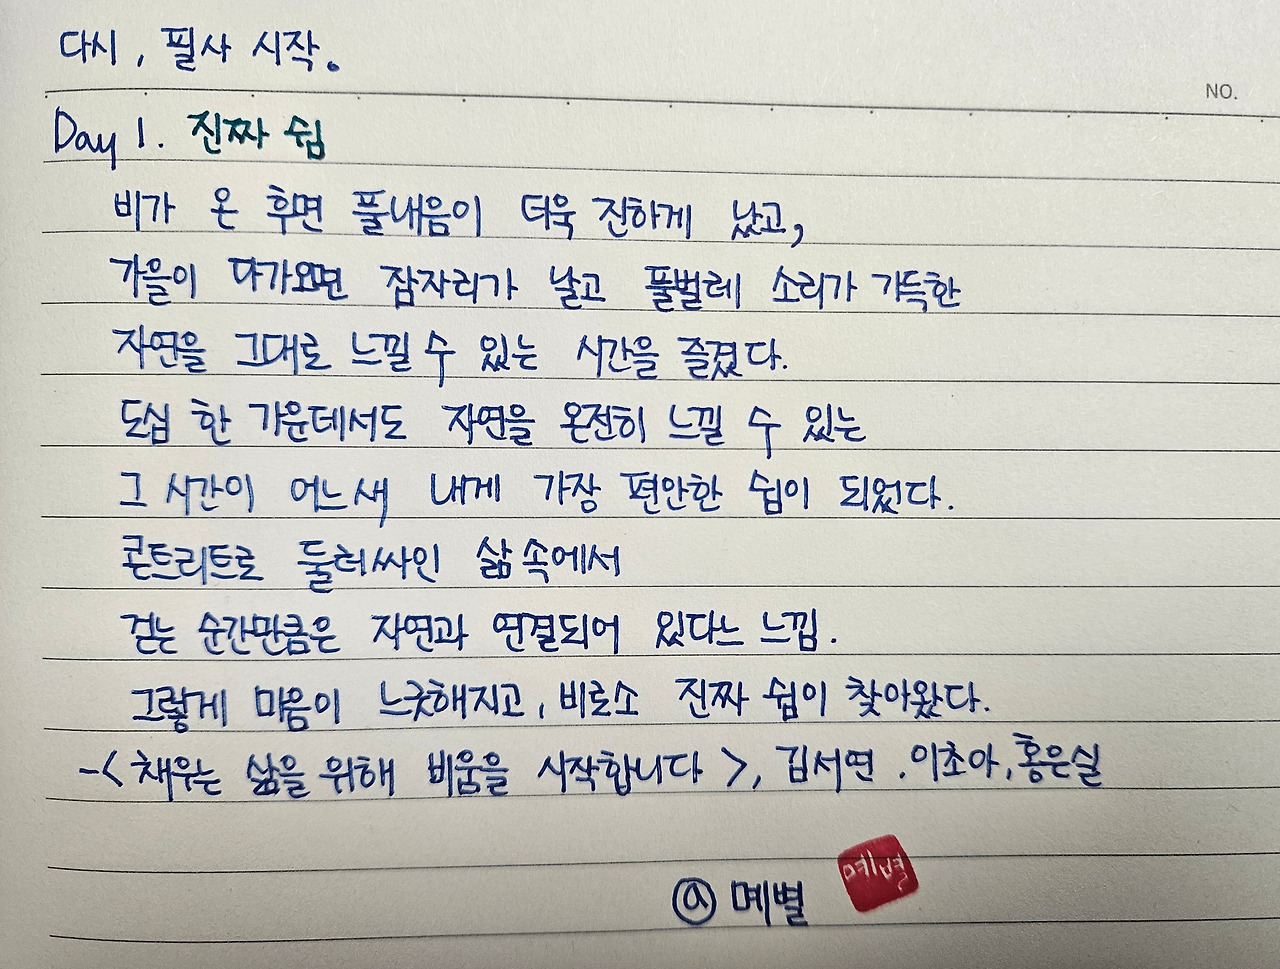 다시, 필사 시작.
NO.
Day 1. 진짜 쉼
비가 온 후면 풀내음이 더욱 진하게 났고,
가을이 다가오면 잠자리가 날고 풀벌레 소리가 가득한
자연을 그대로 느낄 수 있는 시간을 즐겼다.
도심 한 가운데서도 자연을 온전히 느낄 수 있는
그 시간이 어느새 내게 가장 편안한 쉼이 되었다.
콘트리트로 둘러싸인 삶 속에서
걷는 순간만큼은 자연과 연결되어 있다느 느낌.
그렇게 마음이 느긋해지고, 비로소 진짜 쉼이 찾아왔다.
-< 채우는 삶을 위해 비움을 시작합니다 >, 김서연 . 이초아, 홍은실
ⓐ 예별
예별